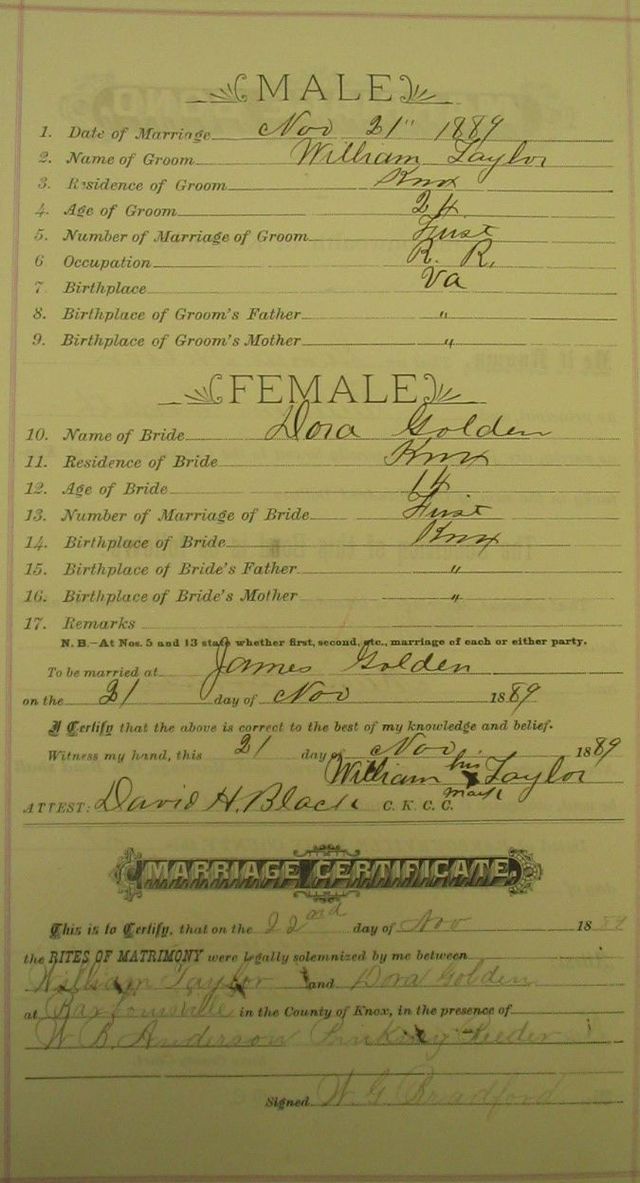 MALE
1. Date of Marriage Nov 21" 1889
2. Name of Groom William Taylor
3. Residence of Groom Knox
4. Age of Groom 24
5. Number of Marriage of Groom First
6 Occupation R. R.
7 Birthplace Va
8. Birthplace of Groom's Father "
9. Birthplace of Groom's Mother "
FEMALE
10. Name of Bride Dora Golden
11. Residence of Bride Knox
12. Age of Bride 14
13. Number of Marriage of Bride First
14. Birthplace of Bride Knox
15. Birthplace of Bride's Father "
16. Birthplace of Bride's Mother "
17. Remarks
N. B.—At Nos. 5 and 13 state whether first, second, etc., marriage of each or either party.
To be married at James Golden
on the 21 day of Nov 1889
I Certify that the above is correct to the best of my knowledge and belief.
Witness my hand, this 21 day of Nov 1889
William his x mark Taylor
ATTEST: David H. Black C. K. C. C.
MARRIAGE CERTIFICATE.
This is to Certify, that on the 22nd day of Nov 1889
the RITES OF MATRIMONY were legally solemnized by me between
William Taylor and Dora Golden
at Barbourville in the County of Knox, in the presence of
W. B. Anderson Pinkney Reeder
Signed W. G. Bradford